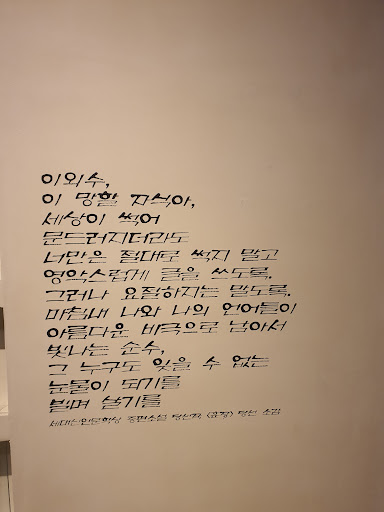 이외수,
이 망할 자식아,
세상이 썩어
문드러지더라도
너만은 절대로 썩지 말고
영악스럽게 글을 쓰도록,
그러나 요절하지는 말도록.
마침내 나와 나의 언어들이
아름다운 비극으로 남아서
빛나는 순수,
그 누구도 잊을 수 없는
눈물이 되기를
빌며 살기를
세대신인문학상 중편소설 당선작 <훈장> 당선 소감